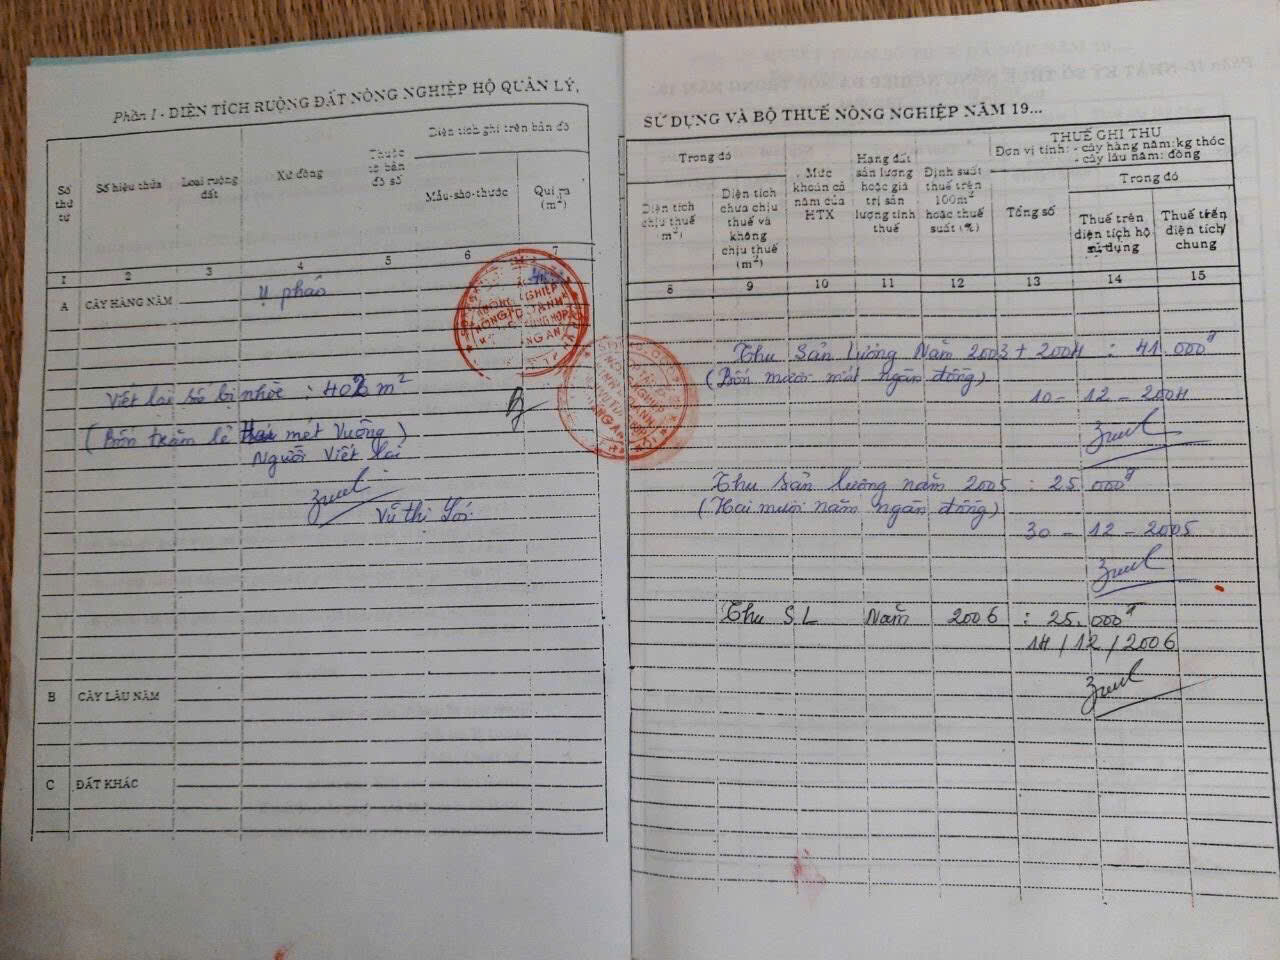 Phần I - DIỆN TÍCH RUỘNG ĐẤT NÔNG NGHIỆP HỘ QUẢN LÝ,
Số thứ tự
Số hiệu thửa
Loại ruộng đất
Xứ đồng
Thuộc tờ bản đồ số
Diện tích ghi trên bản đồ
Mẫu-sào-thước
Qui ra (m²)
1 2 3 4 5 6 7
A CÂY HÀNG NĂM
Ụ pháo
Viết lại số bị nhòe : 402 m²
(Bốn trăm lẻ hai mét vuông)
Người viết lại
Vũ Thị Lới
B CÂY LÂU NĂM
C ĐẤT KHÁC
SỬ DỤNG VÀ BỘ THUẾ NÔNG NGHIỆP NĂM 19...
Trong đó
Diện tích chịu thuế m²)
Diện tích chưa chịu thuế và không chịu thuế (m²)
Mức khoán cả năm của HTX
Hạng đất sản lượng hoặc giá trị sản lượng tính thuế
Định suất thuế trên 100m² hoặc thuế suất (%)
THUẾ GHI THU
Đơn vị tính: - cây hàng năm: kg thóc
- cây lâu năm: đồng
Tổng số
Trong đó
Thuế trên diện tích hộ sử dụng
Thuế trên diện tích chung
8 9 10 11 12 13 14 15
Thu sản lượng Năm 2003 + 2004 : 41.000đ
(Bốn mươi mốt ngàn đồng)
10 - 12 - 2004
Thu sản lượng năm 2005 : 25.000đ
(Hai mươi năm ngàn đồng)
30 - 12 - 2005
Thu SL Năm 2006 : 25.000đ
14/12/2006